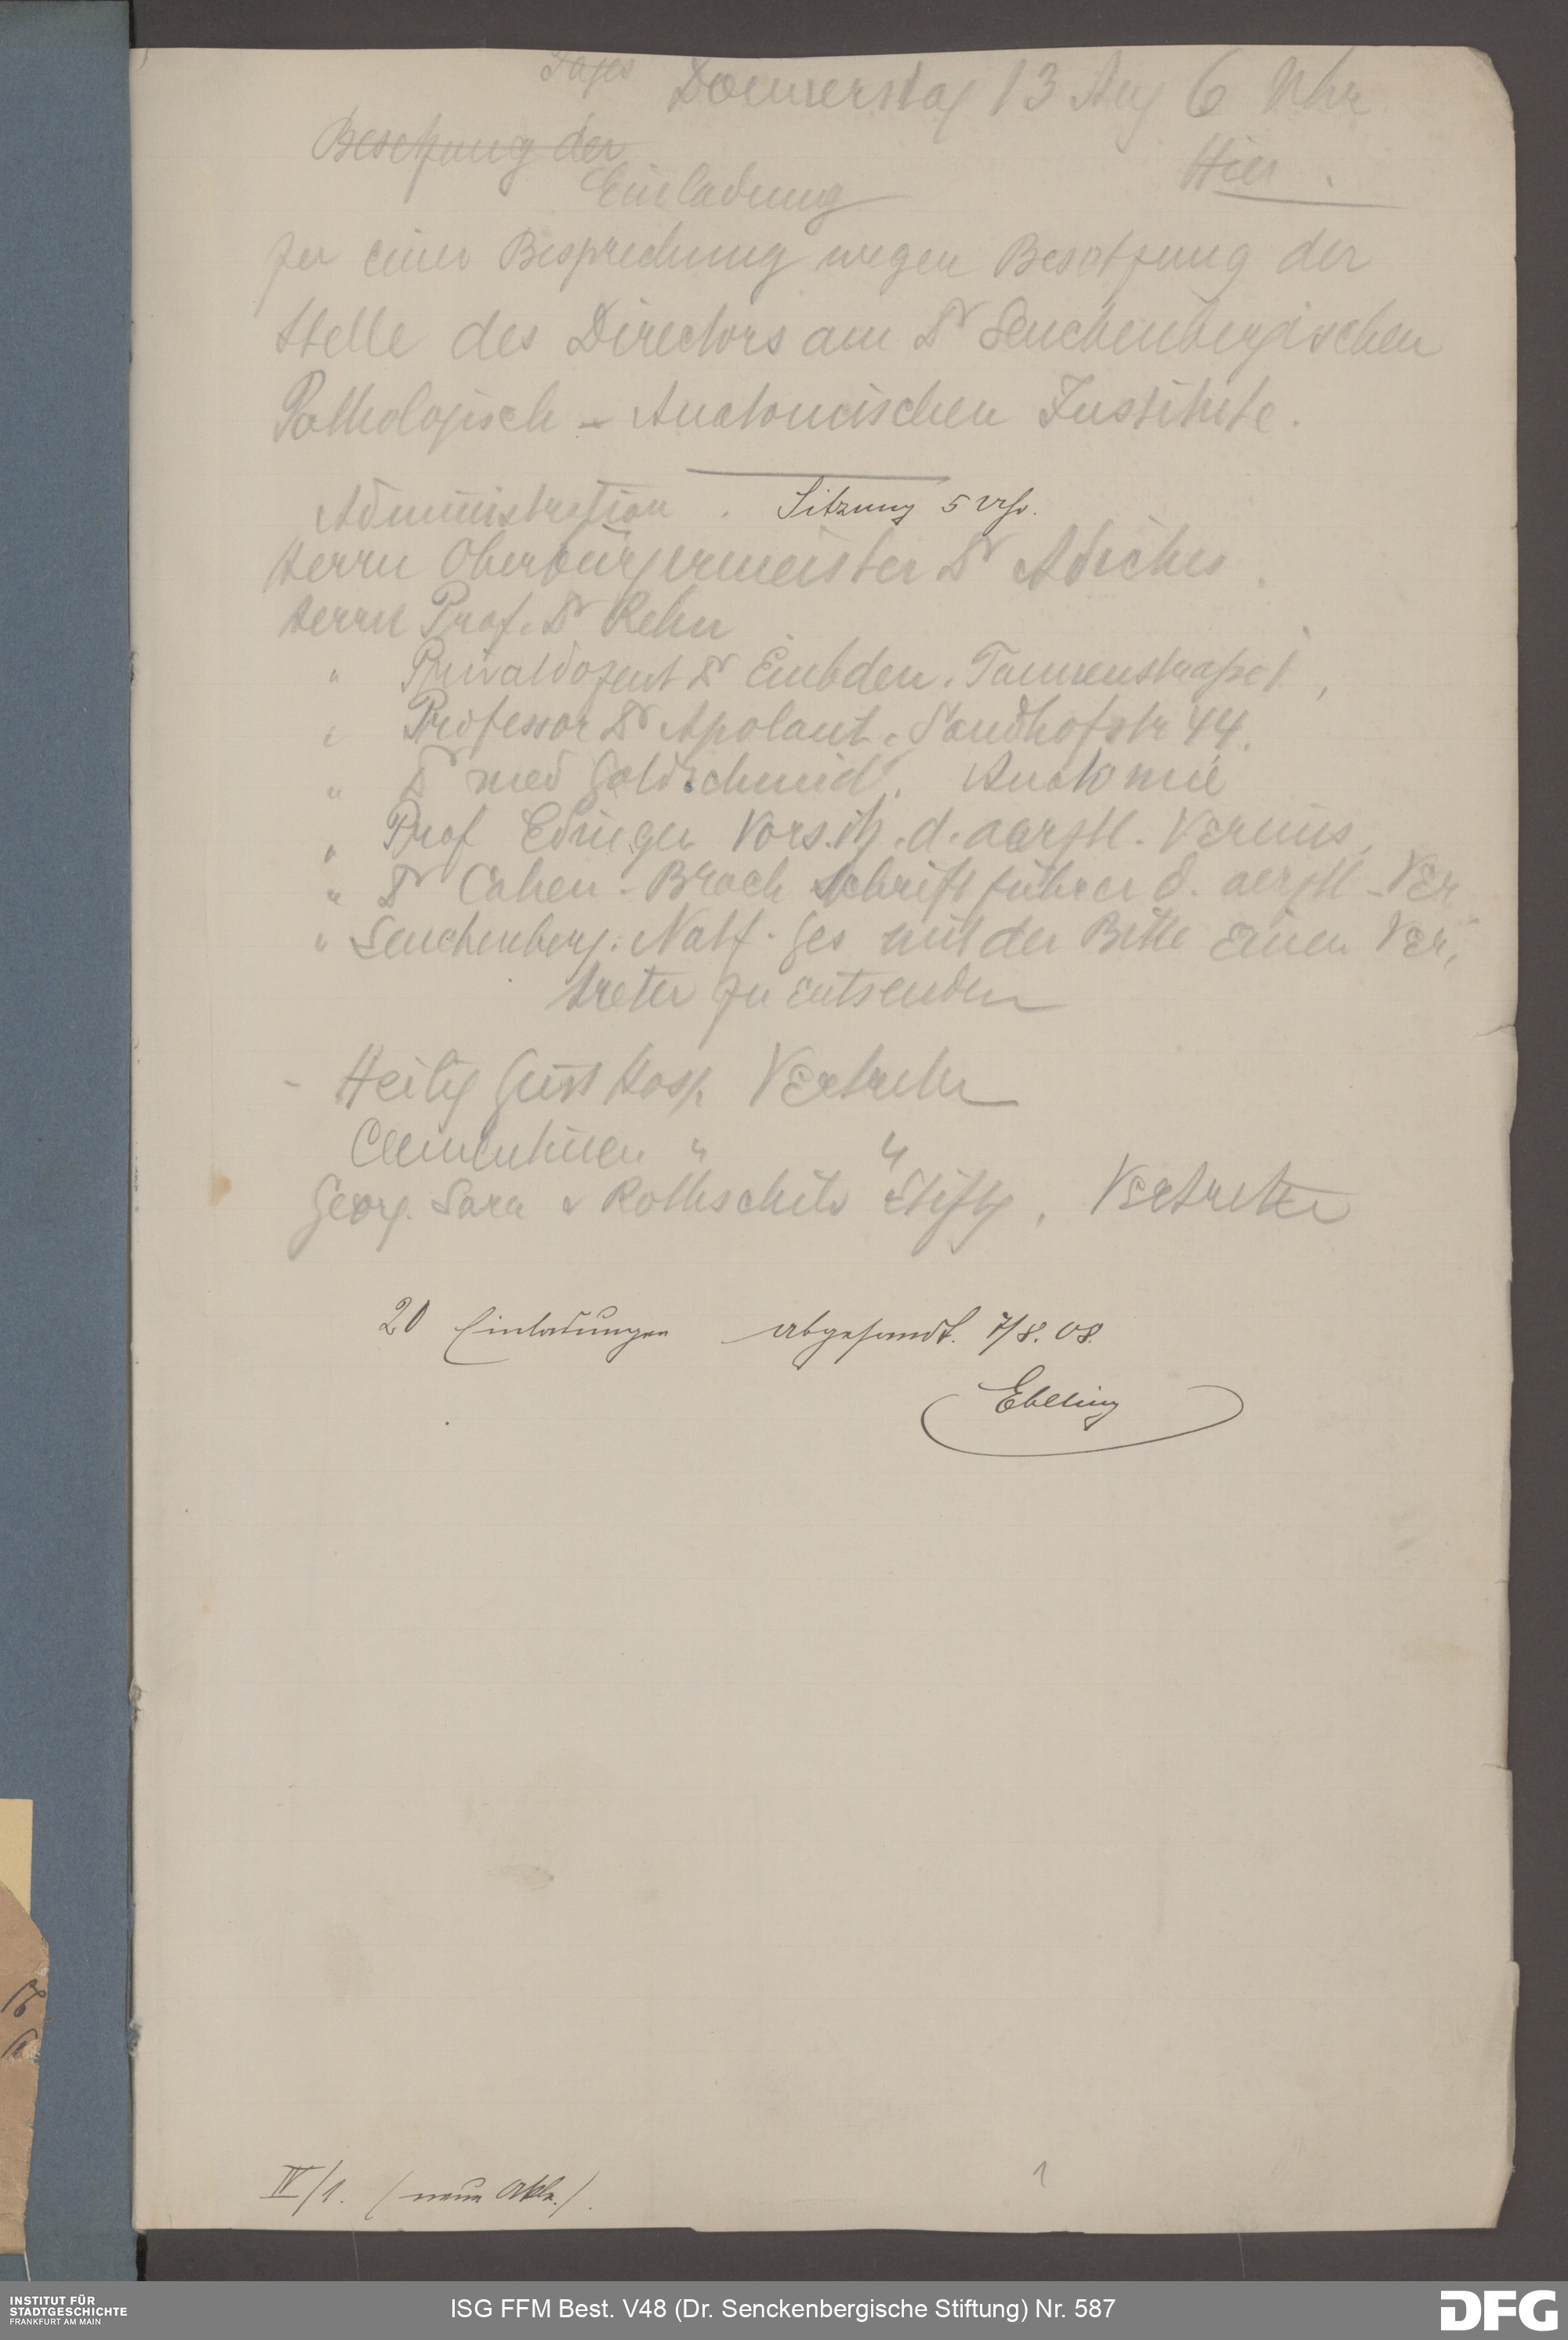 Tages Donnerstag 13 Aug 6 Uhr
Besetzung der
Hier.
Einladung
zu einer Besprechung wegen Besetzung der
Stelle des Directors am Dr Senckenbergischen
Pathologisch - Anatomischen Institute.
Administration. Sitzung 5 Uhr.
Herrn Oberbürgermeister Dr Adickes.
Herrn Prof. Dr Rehn
" Privatdozent Dr Embden. Taunusstrasse 1,
" Professor Dr Apolant. Sandhofstr 44.
" Dr med Goldschmid. Anatomie
" Prof Edinger Vorsitz. d. aerztl. Vereins,
" Dr Cahen-Brach Schriftführer d. aerztl-Ver
" Senckenberg. Natf. Ges mit der Bitte einen Ver,
treter zu entsenden
- Heilig Geist Hosp. Vertreter
Clementinen " "
Georg. Sara v Rothschild Stiftg, Vertreter
20 Einladungen abgesandt. 7/8. 08.
Ebeling
IV/1. (neue Akte.).
1
INSTITUT FÜR
STADTGESCHICHTE
FRANKFURT AM MAIN
ISG FFM Best. V48 (Dr. Senckenbergische Stiftung) Nr. 587
DFG